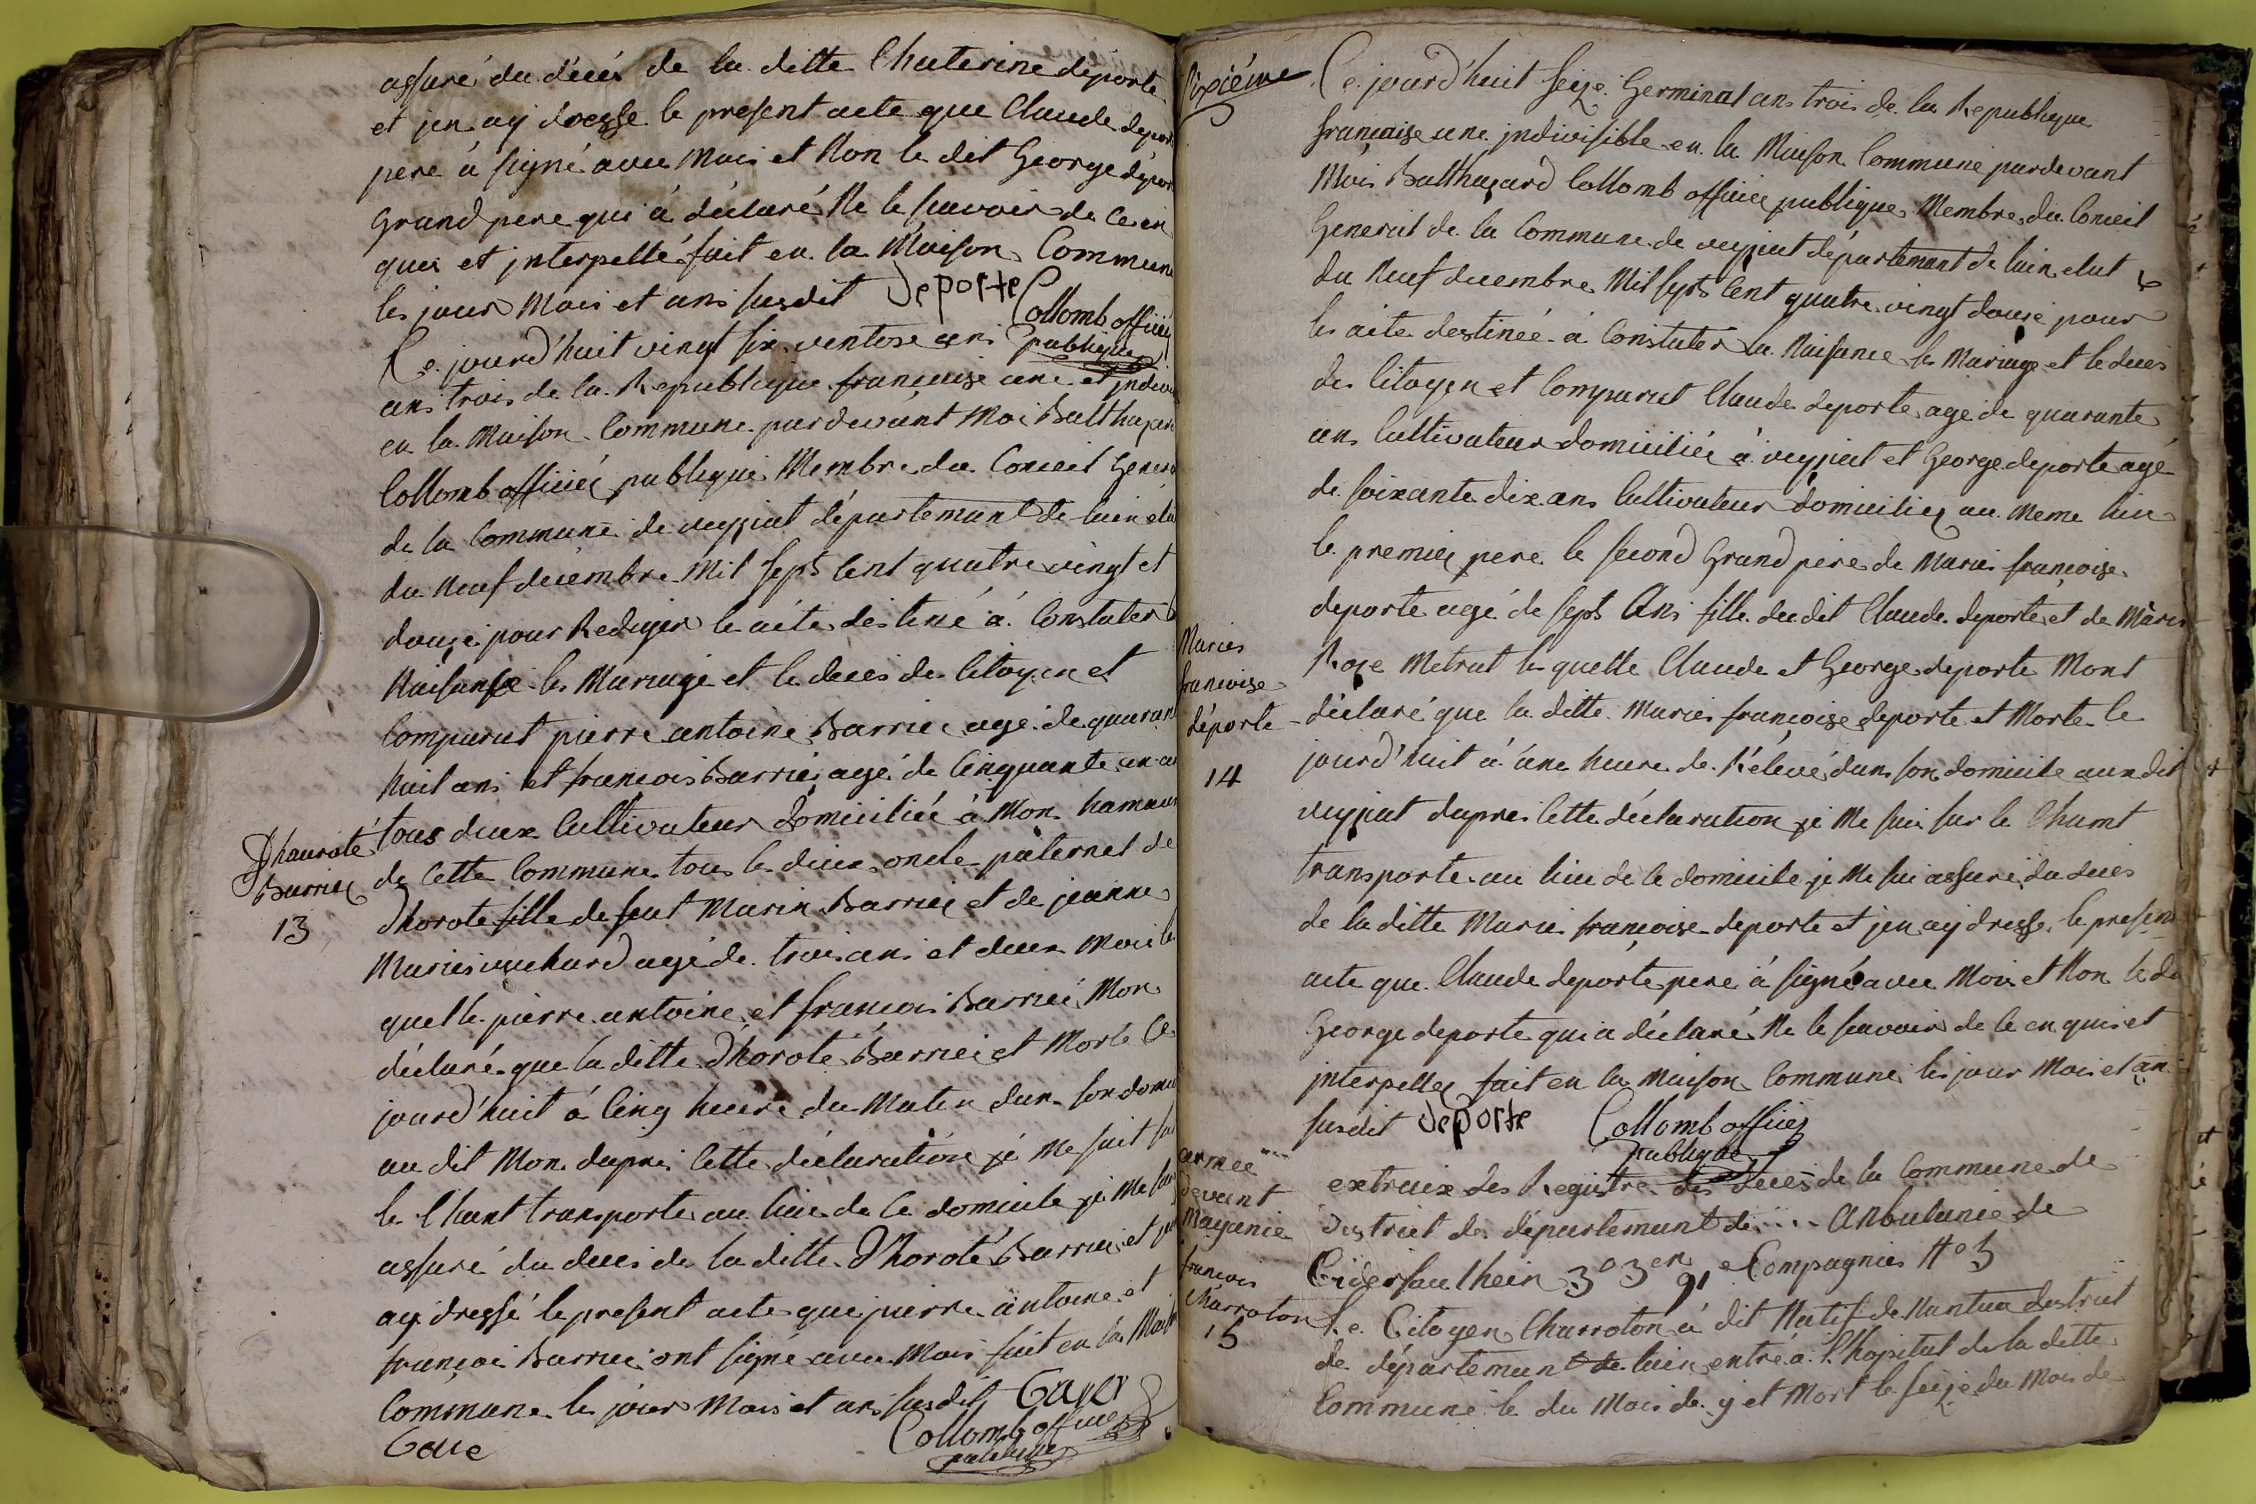 assuré du décés de la ditte Chaterine deporte
et jen ay dresse le present acte que Claude depor
pere á signé avec Mois et Non le dit George dépor
Grand pere qui á déclaré Ne le scavoir de ce en
quis et jnterpellé fait en la Maison Commune
les jour Mois et ans susdit deporte Collomb officiez
publique
Ce jourd'huit vingt six ventose ans
ans trois de la Republique françaize une et jndivi
en la Maison Commune pardevant Moi Balthazar
Collomb officiez publique Membre du Conseil General
de la Commune de veyziat département de lain elut
du Neuf décembre Mil Sept Cent quatre vingt et
douze pour Rediger le acte destiné á Constater la
Naisanse les Mariage et le deces des Citoyen et
Comparut pierre antoine Barriez agé de quarant
huit ans et francois Barriez agé de Cinquante un an
Dhauroté
Barriez
13
tous deux Cultivateur domiciliéé á Mon hameau
de Cette Commune tous les deux oncle paternel de
Dhorote fille de feut Marin Barriez et de jeanne
Maries vuchard agé de trois ans et deux Mois la
quelle pierre antoine et francois Barriez Mon
déclaré que la ditte Dhoroté Barriez et Morte Ce
jourd'huit á Cinq heure du Matin dans son domi
au dit Mon dapres Cette déclaration je Me suit sur
le Chant transporte au lieu de Ce domicile je Me suis
assuré du deces de la ditte Dhoroté Barriez et jen
ay dressé le present acte que pierre antoine et
françois Barriez ont signé avec Mois fait en la Maison
Commune les jour Mois et ans susdit
Collomb officiez
publique
Sixiéme
Ce jourd'huit seize Germinal ans trois de la Republique
françaize une jndivisible en la Maison Commune pardevant
Mois Balthazard Collomb officiez publique Membre du Conseil
General de la Commune de veyziat département de lain elut
du Neuf decembre Mil Sept Cent quatre vingt douze pour
les acte destineé á Constater la Naisance les Mariage et le deces
des Citoyen et Comparut Claude deporte age de quarante
ans Cultivateur domiciliée á veyziat et George deporte agé
de soixante dix ans Cultivateur domiciliez au Meme lieu
le premiez pere le second Grand pere de Maries françoise
deporte agé de Sept Ans fille du dit Claude deporte et de Maries
Maries
francoise
déporte
14
Roze Metrat les quelle Claude et George deporte Mont
déclaré que la ditte Maries françoise deporte et Morte le
jourd'huit á une heure de Rélevé dans son domicile au dit
veyziat dapres Cette déclaration je Me suis sur le Chamt
transporte au lieu de Ce domicile je Me suis assuré du deces
de la ditte Maries françoise deporte et jen ay dresse le present
acte que Claude deporte pere á signé avec Mois et Non le di
George deporte qui a déclaré Ne le scavoir de Ce en quis et
jnterpellez fait en la Maison Commune les jour Mois et an
susdit deporte Collomb officiez
publique
armee
devant
Mayanie
francois
Charroton
15
extraix des Registre des deces de la Commune de
district de département de... Anbulanie de
3º 3en 91 e Compagnies Nº 3
Le Citoyen Charroton á dit Natif de Nantua district
de département de lain entré á l'hopital de la ditte
Commune le du Mois de y et Mort le seize du Mois de